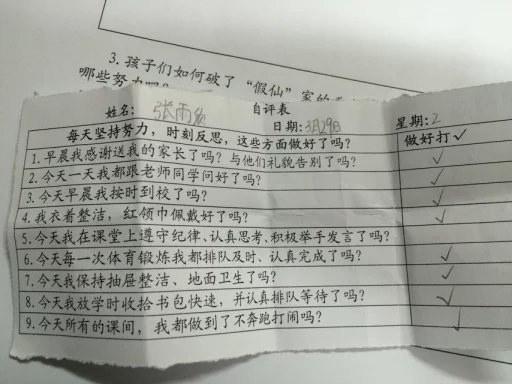 3. 孩子们如何破了“假仙”家的
哪些努力吗?
自评表
姓名: 张雨
日期: 3月29日
星期: 2
每天坚持努力,时刻反思,这些方面做好了吗?
做好打✓
1. 早晨我感谢送我的家长了吗?与他们礼貌告别了吗? ✓
2. 今天一天我都跟老师同学问好了吗? ✓
3. 今天早晨我按时到校了吗? ✓
4. 我衣着整洁,红领巾佩戴好了吗? ✓
5. 今天我在课堂上遵守纪律、认真思考、积极举手发言了吗?
6. 今天每一次体育锻炼我都排队及时、认真完成了吗? ✓
7. 今天我保持抽屉整洁、地面卫生了吗? ✓
8. 今天我放学时收拾书包快速,并认真排队等待了吗? ✓
9. 今天所有的课间,我都做到了不奔跑打闹吗? ✓